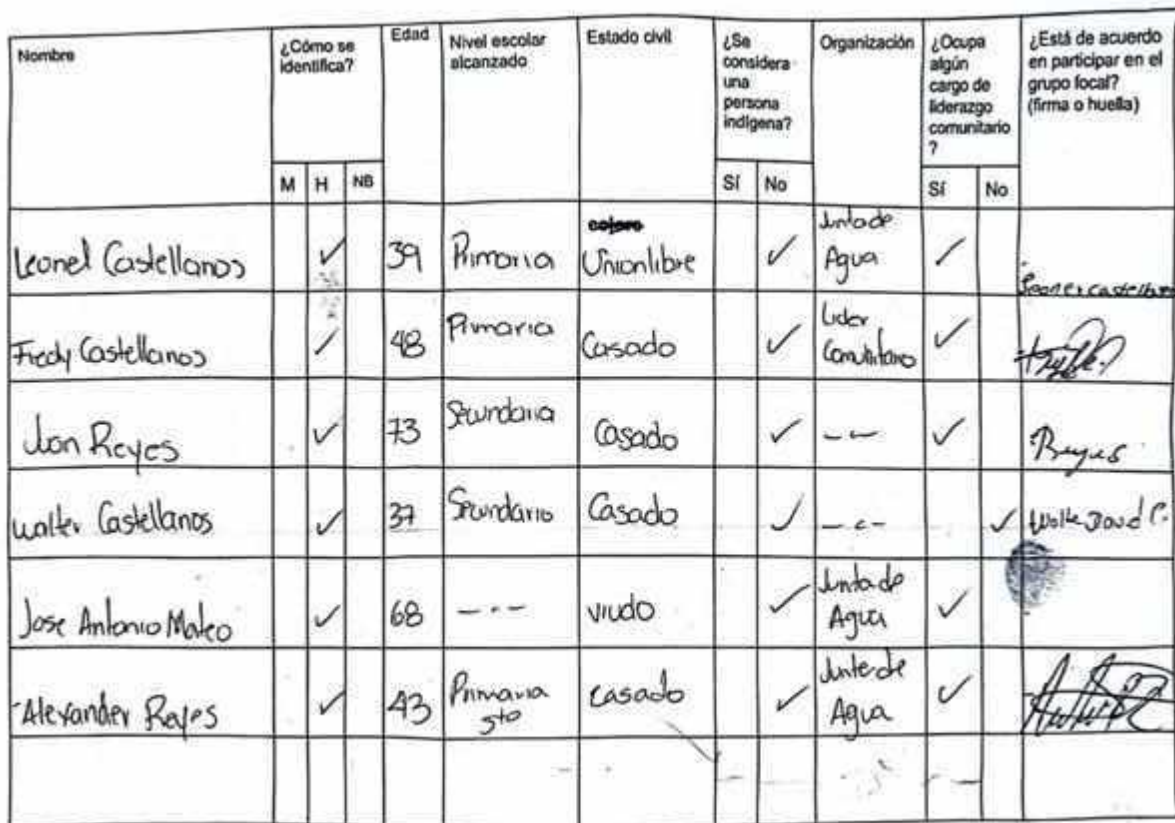 Nombre ¿Cómo se identifica? Edad Nivel escolar alcanzado Estado civil ¿Se considera una persona indígena? Organización ¿Ocupa algún cargo de liderazgo comunitario? ¿Está de acuerdo en participar en el grupo focal? (firma o huella)
M H NB Sí No Sí No
Leonel Castellanos ✓ 39 Primaria Unionlibre ✓ Junta de Agua ✓ Leonel castellanos
Fredy Castellanos ✓ 48 Primaria Casado ✓ Lider Comunitario ✓
Juan Reyes ✓ 73 Secundaria Casado ✓ -- ✓ Reyes
Walter Castellanos ✓ 37 Secundario Casado ✓ --- ✓
Jose Antonio Mateo ✓ 68 --- viudo ✓ Junta de Agua ✓
Alexander Reyes ✓ 43 Primaria 5to casado ✓ Junta de Agua ✓